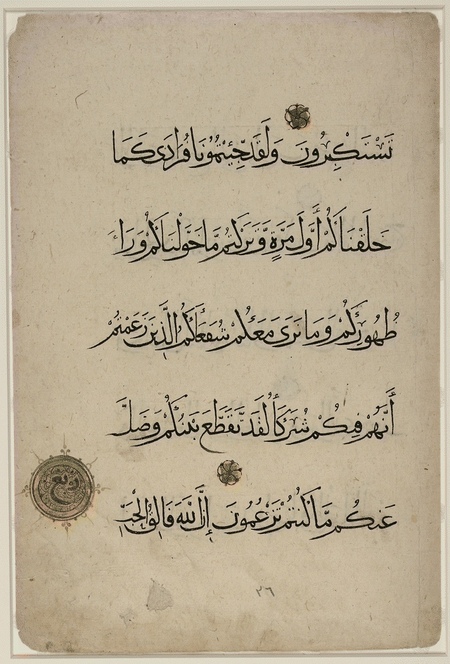 تَسْتَكْبِرُونَ وَلَقَدْ جِئْتُمُونَا فُرَادَى كَمَا
خَلَقْنَاكُمْ أَوَّلَ مَرَّةٍ وَتَرَكْتُمْ مَا خَوَّلْنَاكُمْ وَرَاءَ
ظُهُورِكُمْ وَمَا نَرَى مَعَكُمْ شُفَعَاءَكُمُ الَّذِينَ زَعَمْتُمْ
أَنَّهُمْ فِيكُمْ شُرَكَاءُ لَقَدْ تَقَطَّعَ بَيْنَكُمْ وَضَلَّ
عَنْكُمْ مَا كُنْتُمْ تَزْعُمُونَ إِنَّ اللَّهَ فَالِقُ الْحَبِّ
٢٦